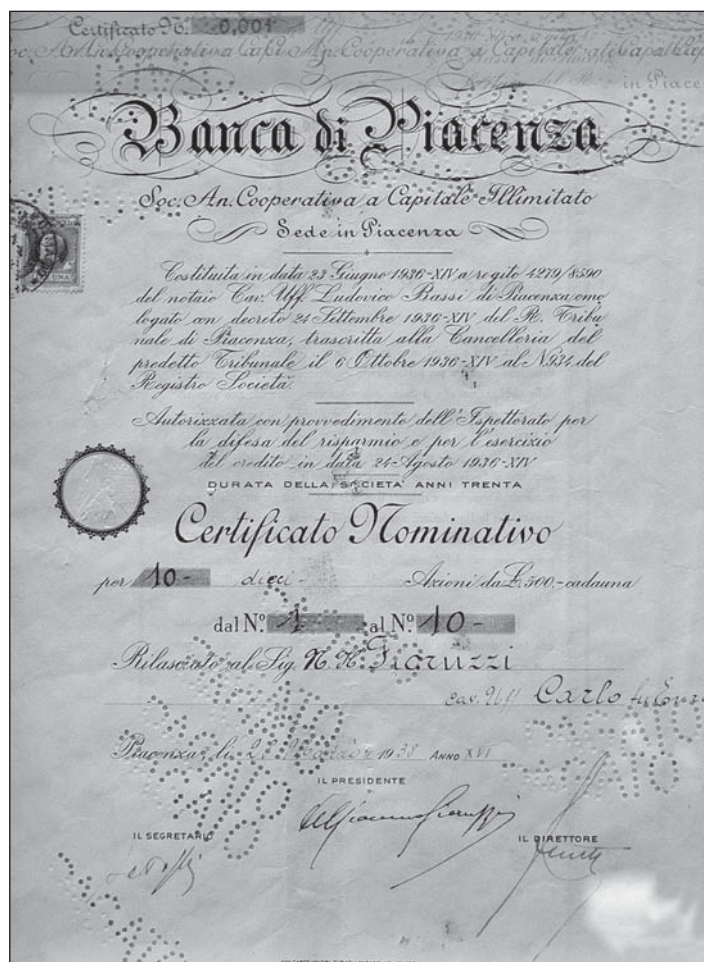 Certificato No. 0,001
Soc. An. Cooperativa a Capi
An. Cooperativa a Capitale
in Piace
Banca di Piacenza
Soc. An. Cooperativa a Capitale Illimitato
Sede in Piacenza
Costituita in data 23 Giugno 1936-XIV a rogito 4279/8590
del notaio Cav. Uff. Ludovico Bassi di Piacenza, omo
logato con decreto 24 Settembre 1936-XIV del R. Tribu
nale di Piacenza, trascritta alla Cancelleria del
predetto Tribunale il 6 Ottobre 1936-XIV al N. 934 del
Registro Società.
Autorizzata con provvedimento dell'Ispettorato per
la difesa del risparmio e per l'esercizio
del credito in data 24 Agosto 1936-XIV
DURATA DELLA SOCIETA' ANNI TRENTA
Certificato Nominativo
per 10- dieci- Azioni da L. 500.- cadauna
dal No. 1 al No. 10-
Rilasciato al Sig. N. H.
cav. Uff Carlo fu
Piacenza, li 1938 ANNO XVI
IL PRESIDENTE
IL SEGRETARIO
IL DIRETTORE